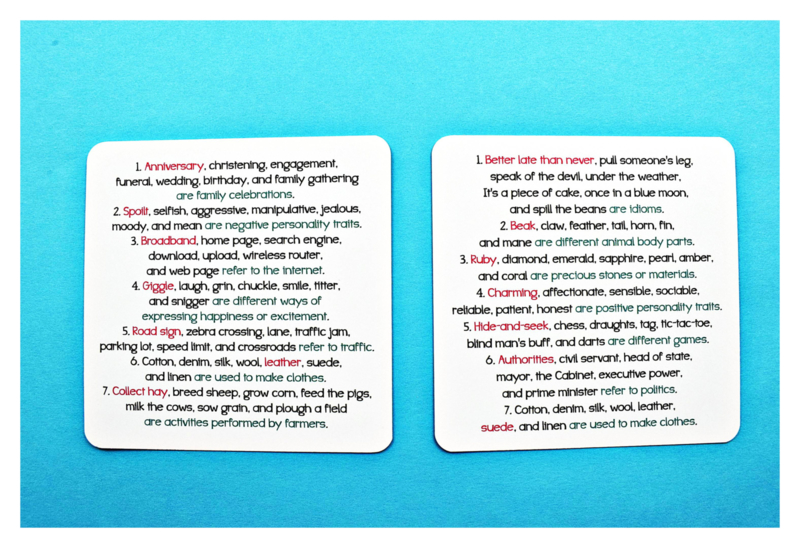 1. Anniversary, christening, engagement,
funeral, wedding, birthday, and family gathering
are family celebrations.
2. Spoilt, selfish, aggressive, manipulative, jealous,
moody, and mean are negative personality traits.
3. Broadband, home page, search engine,
download, upload, wireless router,
and web page refer to the internet.
4. Giggle, laugh, grin, chuckle, smile, titter,
and snigger are different ways of
expressing happiness or excitement.
5. Road sign, zebra crossing, lane, traffic jam,
parking lot, speed limit, and crossroads refer to traffic.
6. Cotton, denim, silk, wool, leather, suede,
and linen are used to make clothes.
7. Collect hay, breed sheep, grow corn, feed the pigs,
milk the cows, sow grain, and plough a field
are activities performed by farmers.
1. Better late than never, pull someone's leg,
speak of the devil, under the weather,
It's a piece of cake, once in a blue moon,
and spill the beans are idioms.
2. Beak, claw, feather, tail, horn, fin,
and mane are different animal body parts.
3. Ruby, diamond, emerald, sapphire, pearl, amber,
and coral are precious stones or materials.
4. Charming, affectionate, sensible, sociable,
reliable, patient, honest are positive personality traits.
5. Hide-and-seek, chess, draughts, tag, tic-tac-toe,
blind man's buff, and darts are different games.
6. Authorities, civil servant, head of state,
mayor, the Cabinet, executive power,
and prime minister refer to politics.
7. Cotton, denim, silk, wool, leather,
suede, and linen are used to make clothes.